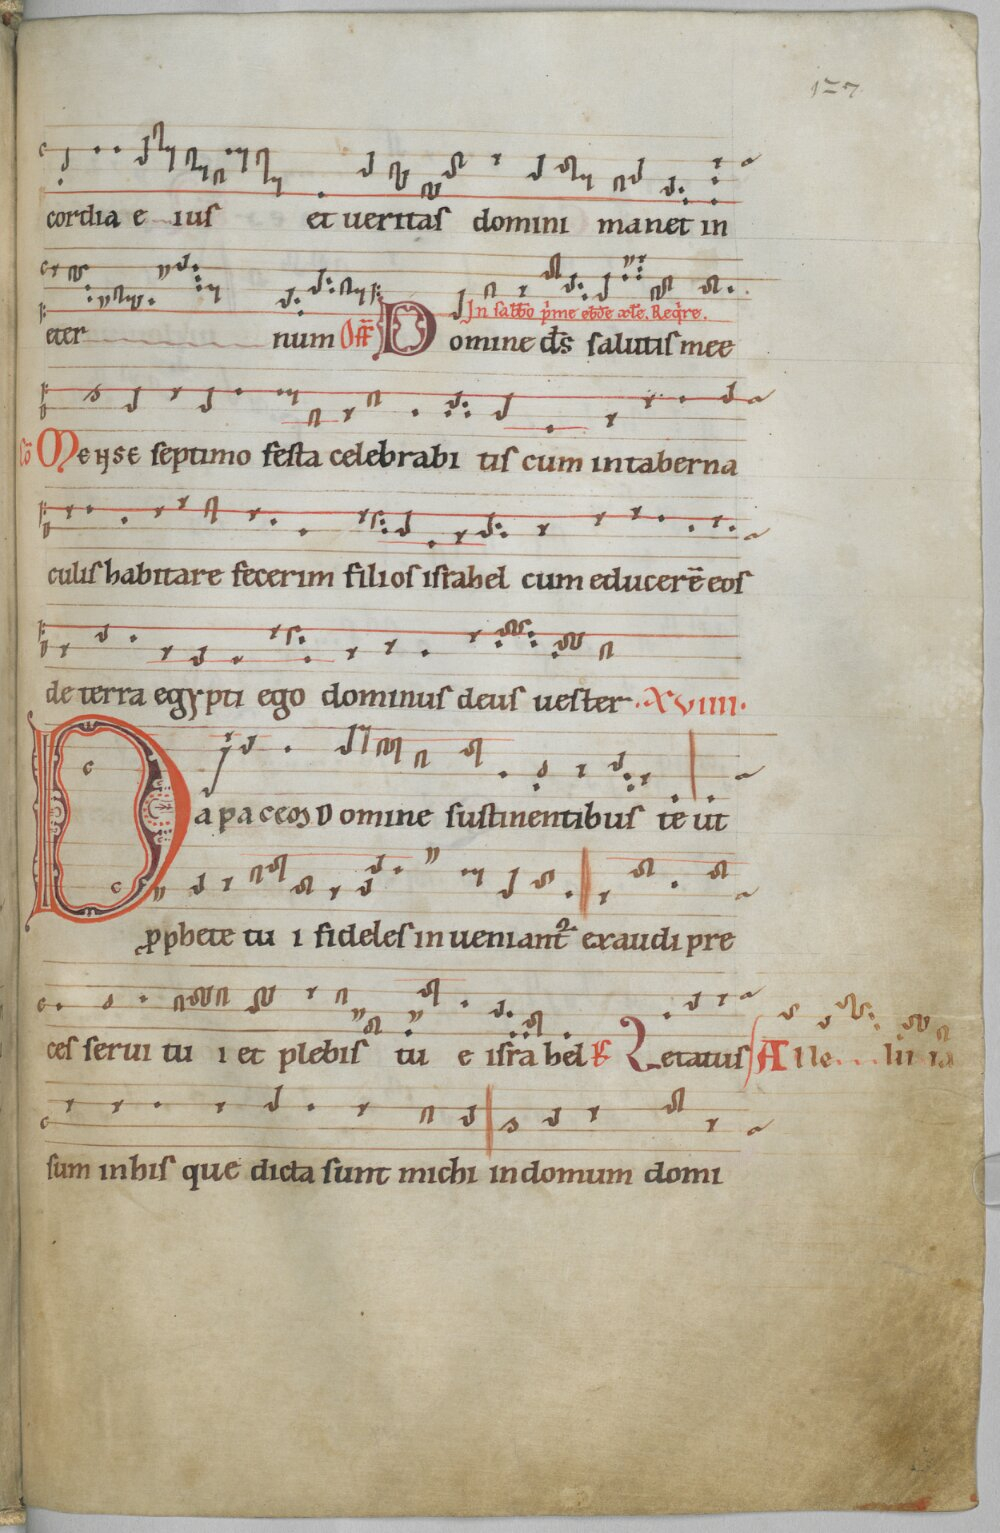 127
cordia e ius et ueritas domini manet in
eter num Off Domine ds salutis mee
In sabbo pime ebde xle. Reqire.
Co Mense septimo festa celebrabi tis cum in taberna
culis habitare fecerim filios israhel cum educerē eos
de terra egypti ego dominus deus uester ·XVIIII·
Da pacem Domine sustinentibus te ut
pphete tu i fideles in ueniant exaudi pre
ces serui tu i et plebis tu e isra hel Letatus Alle luia
sum in his que dicta sunt michi in domum domi